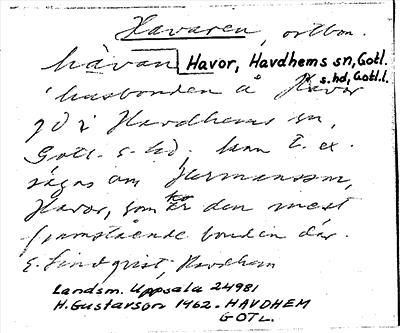 Havaren, ortbon.
håvan Havor, Havdhems sn, Gotl.
s. hd, Gotl. l.
'husbonden å Havor
gd i Havdhems sn,
Gotl. s. hd, kan t. ex.
sägas om Hermansson,
Havor, som är den mest
framstående bonden där.
E. Lindqvist, Havdhem
Landsm. Uppsala 24981
H. Gustavson 1962. HAVDHEM
GOTL.